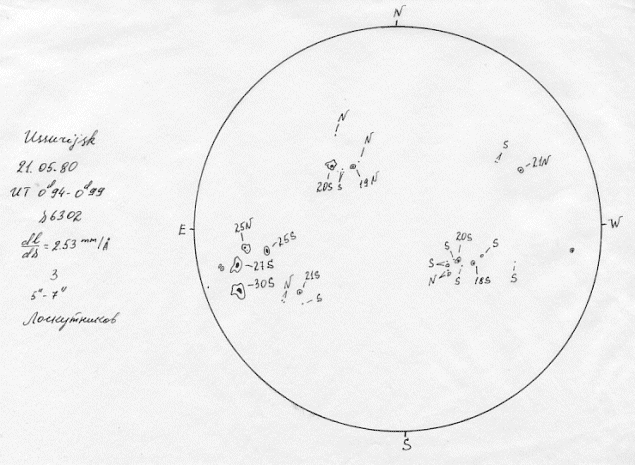 N
Ussurijsk
21.05.80
UT 0ᵈ94-0ᵈ99
λ6302
dl/dλ = 2.53 mm/Å
3
5"-7"
Лоскутников
N
N
S
21N
20S
S
19N
E
W
25N
25S
27S
30S
N
21S
S
20S
S
S
S
N
S
18S
S
S